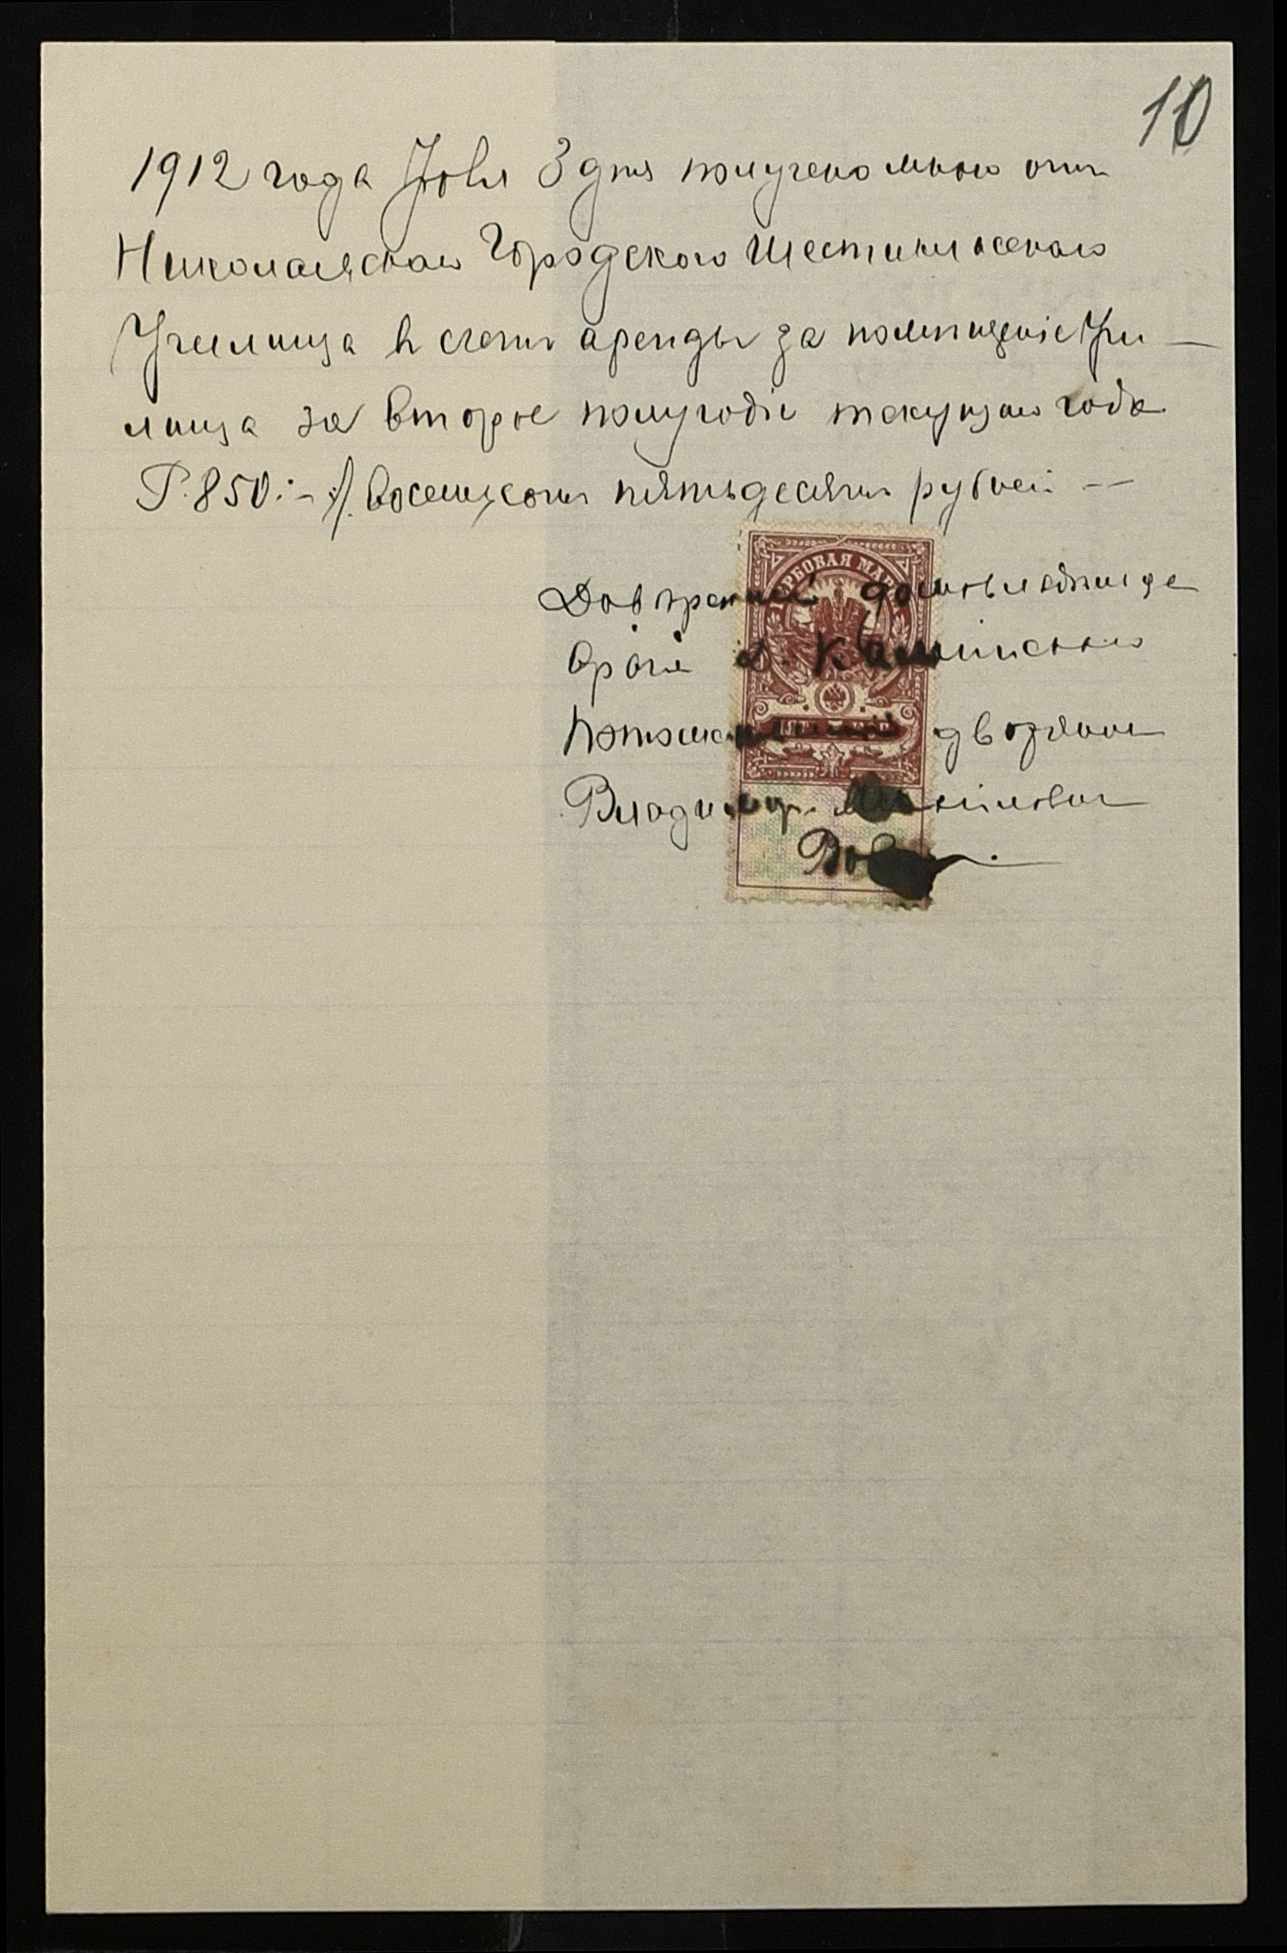 10
1912 года Іюля 3 дня получено мною отъ
Николаевскаго Городского Шестикласснаго
Училища въ счетъ аренды за помѣщеніе Учи-
лища за второе полугодіе текущаго года
Р. 850:- /. восемьсотъ пятьдесятъ рублей --
ГЕРБОВАЯ МАР
Довѣренный домовладѣлицы
Каминской
Потомственный дворянинъ
Владиміръ